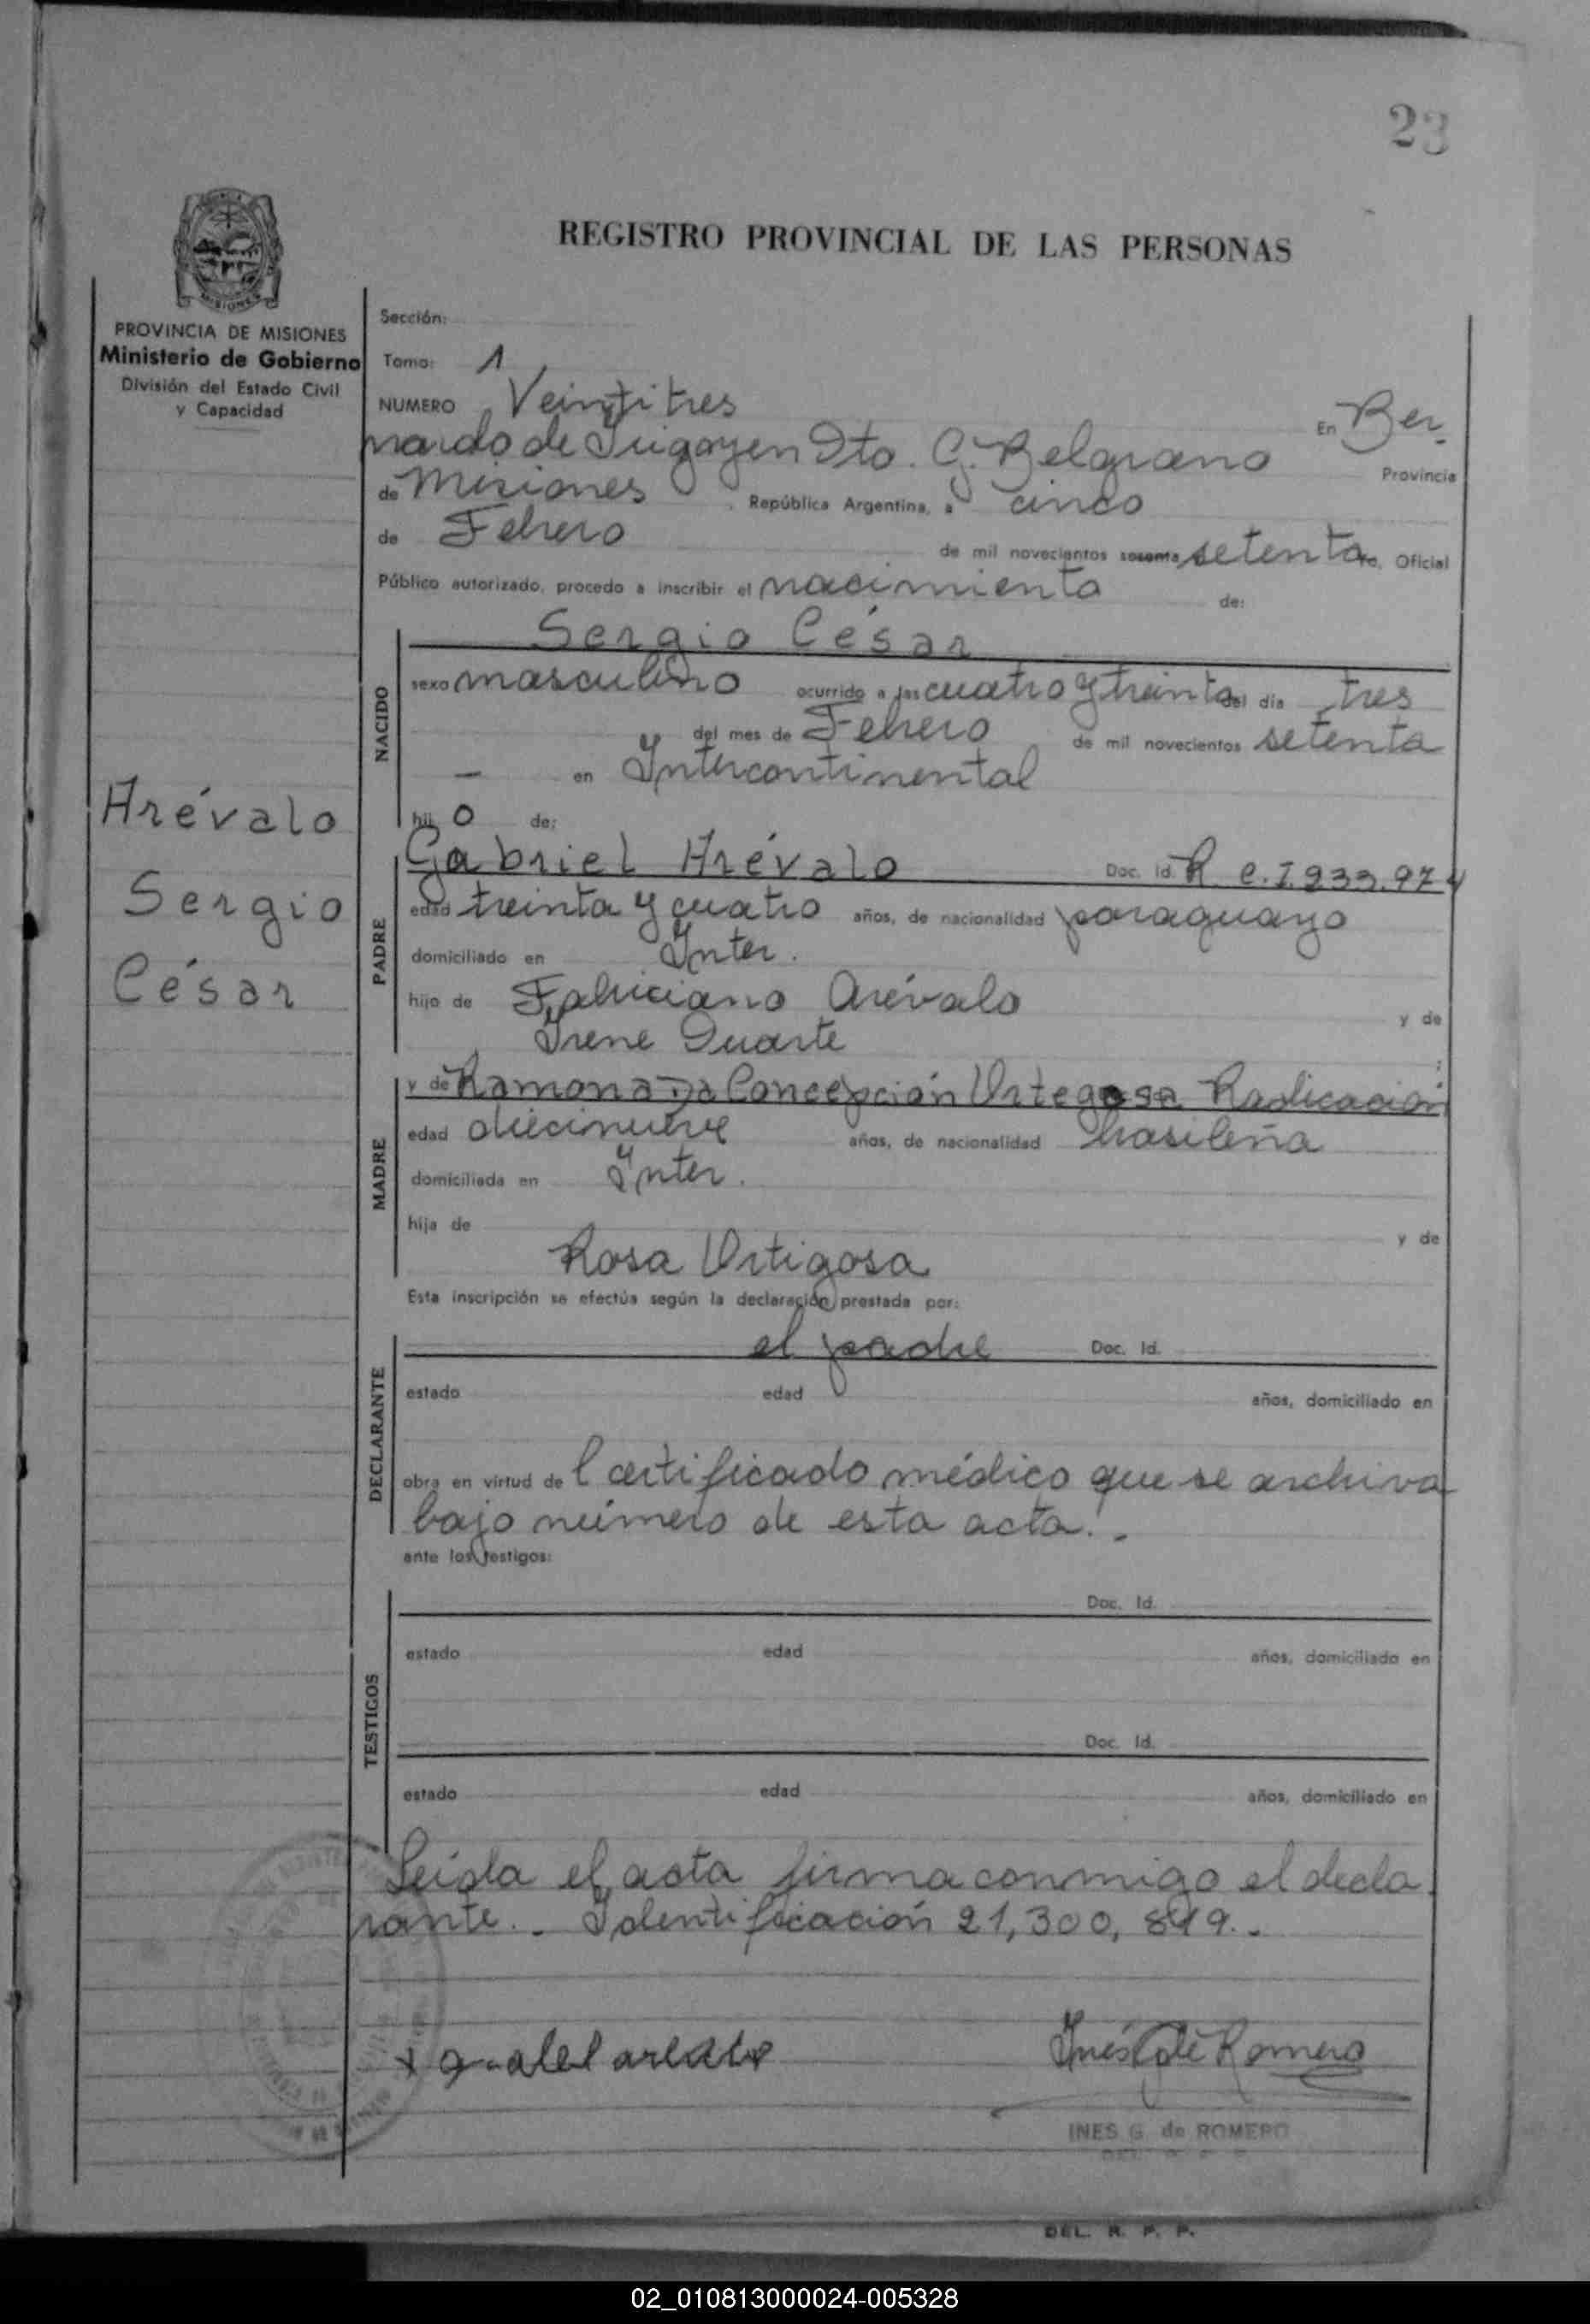 23
REGISTRO PROVINCIAL DE LAS PERSONAS
MISIONES
PROVINCIA DE MISIONES
Ministerio de Gobierno
División del Estado Civil
y Capacidad
Arévalo
Sergio
César
Sección:
Tomo: 1
NUMERO Veintitres
En Ber
nardo de Irigoyen Dto. G. Belgrano Provincia
de Misiones , República Argentina, a cinco
de Febrero de mil novecientos sesenta setenta Yo, Oficial
Público autorizado, procedo a inscribir el nacimiento de:
NACIDO
Sergio César
sexo masculino ocurrido a las cuatro y treinta del día tres
del mes de Febrero de mil novecientos setenta
— en Intercontinental
hij o de:
PADRE
Gabriel Arévalo Doc. Id. R
edad treinta y cuatro años, de nacionalidad paraguayo
domiciliado en Inter.
hijo de Fabriciano Arévalo y de
Irene Duarte
MADRE
y de Ramona Concepción Radicación
edad diecinueve años, de nacionalidad brasileña
domiciliada en Inter.
hija de y de
Rosa Ortigosa
Esta inscripción se efectúa según la declaración prestada por:
DECLARANTE
el padre Doc. Id.
estado edad años, domiciliado en
obra en virtud de l certificado médico que se archiva
bajo número de esta acta.
ante los testigos:
TESTIGOS
Doc. Id.
estado edad años, domiciliado en
Doc. Id.
estado edad años, domiciliado en
Leída el acta firma conmigo el decla
rante.. Identificación 21,300,849..
Inés G de Romero
INES G. de ROMERO
DEL. R. P. P.
02_010813000024-005328